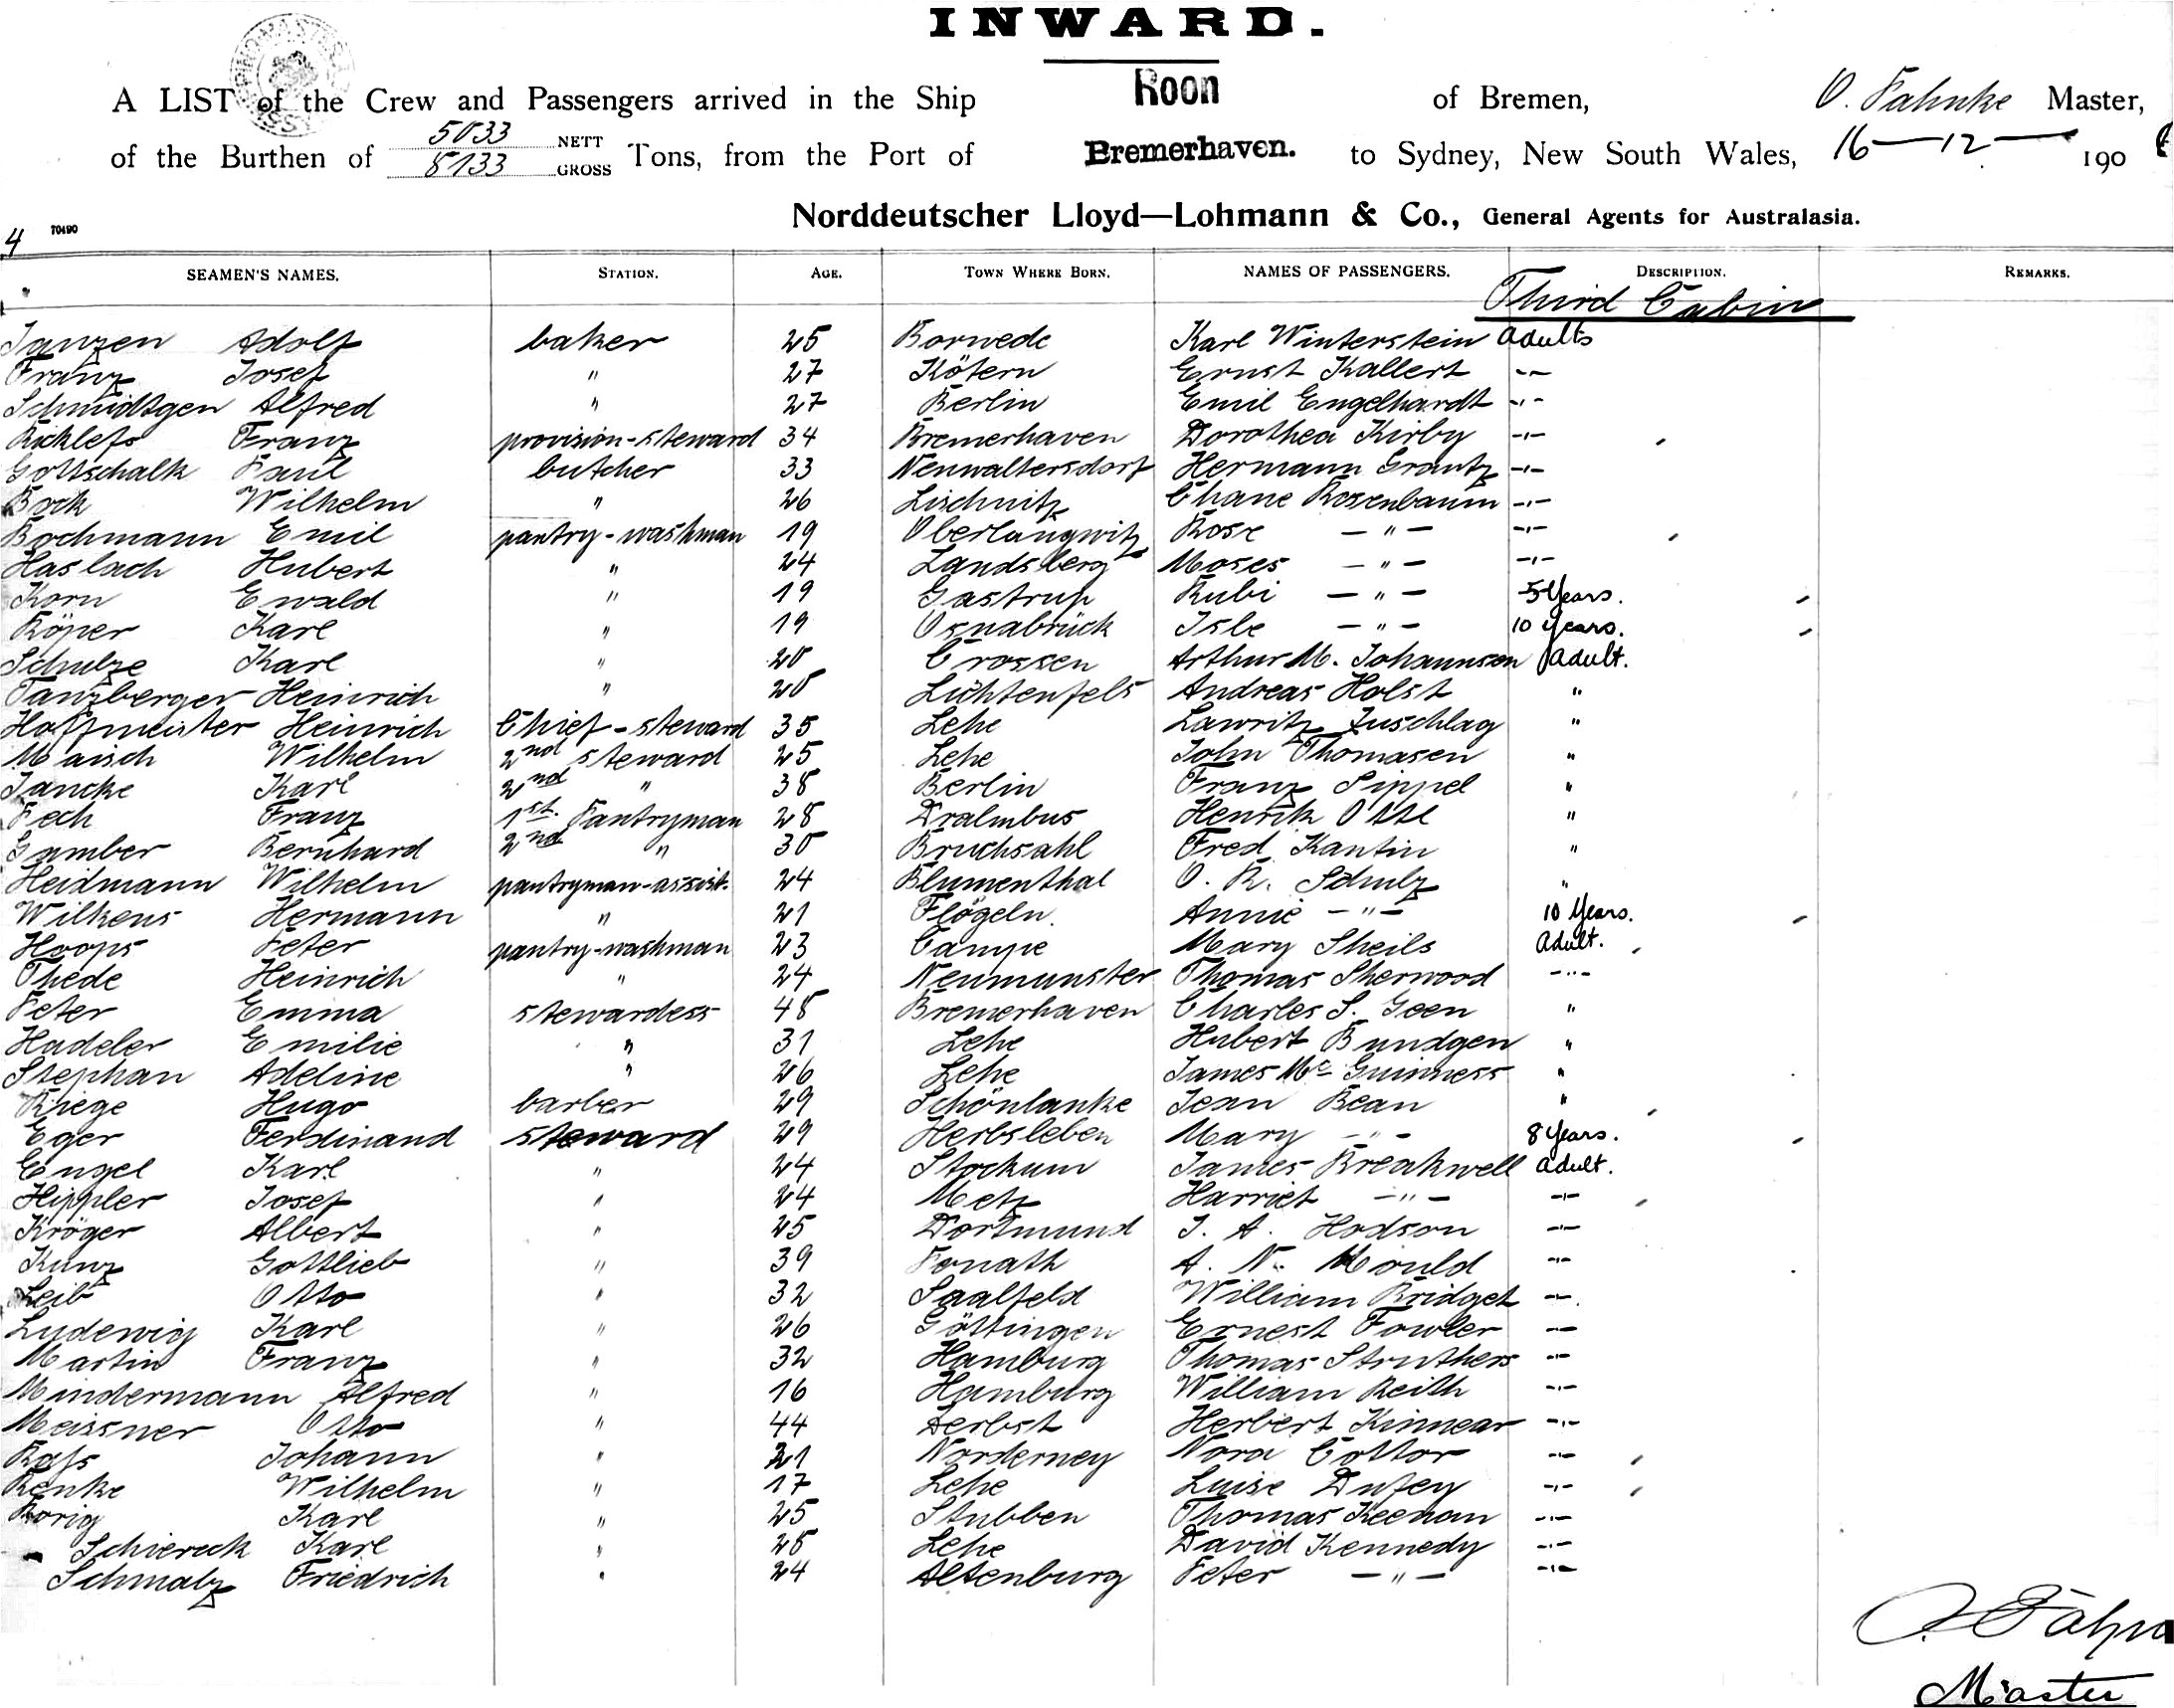 INWARD.
A LIST of the Crew and Passengers arrived in the Ship Roon of Bremen, O. Fahnke Master,
of the Burthen of 5033 NETT 8133 GROSS Tons, from the Port of Bremerhaven. to Sydney, New South Wales, 16-12- 190
Norddeutscher Lloyd—Lohmann & Co., General Agents for Australasia.
4 70490
SEAMEN'S NAMES. STATION. AGE. TOWN WHERE BORN. NAMES OF PASSENGERS. DESCRIPTION. REMARKS.
Third Cabin
Janzen Adolf baker 25 Borwede Karl Winterstein adults
Franz Josef " 27 Kötern Ernst Kallert -"-
Schmidtgen Alfred " 27 Berlin Emil Engelhardt -"-
Ricklefs Franz provision-steward 34 Bremerhaven Dorothea Kirby -"-
Gottschalk Paul butcher 33 Neuwaltersdorf Hermann Grantz -"-
Bock Wilhelm " 26 Lischnitz Chane Rosenbaum -"-
Bochmann Emil pantry-washman 19 Oberlungwitz Rose -"- -"-
Haslach Hubert " 24 Landsberg Moses -"- -"-
Korn Ewald " 19 Gastrup Rubi -"- 5 Years.
Röper Karl " 19 Osnabrück Isle -"- 10 Years.
Schulze Karl " 20 Crossen Arthur M. Johannsen adult.
Tanzberger Heinrich " 20 Lichtenfels Andreas Holst "
Hoffmeister Heinrich Chief-steward 35 Lehe Lawritz Zuschlag "
Maisch Wilhelm 2nd steward 25 Lehe John Thomasen "
Jancke Karl 2nd " 38 Berlin Franz Sippel "
Pech Franz 1st. Pantryman 28 Dralmbus Henrik Otte "
Gamber Bernhard 2nd " 30 Bruchsahl Fred Kantin "
Heidmann Wilhelm pantryman-assist. 24 Blumenthal O. R. Schulz "
Wilkens Hermann " 21 Flögeln Annie -"- 10 Years.
Hoops Peter pantry-washman 23 Campe Mary Sheils Adult.
Thede Heinrich " 24 Neumunster Thomas Sherwood -"-
Peter Emma stewardess 48 Bremerhaven Charles S. Geen "
Hadeler Emilie " 31 Lehe Hubert Bundgen "
Stephan Adeline " 26 Lehe James Mc Guinness "
Riege Hugo barber 29 Schönlanke Jean Bean "
Eger Ferdinand steward 29 Herbsleben Mary -"- 8 Years.
Engel Karl " 24 Stockum James Breakwell adult.
Hippler Josef " 24 Metz Harriet -"- -"-
Kröger Albert " 25 Dortmund J. A. Hodson -"-
Kunz Gottlieb " 39 Ponath A. N. Mould -"-
Leib Otto " 32 Saalfeld William Bridget -"-
Ludewig Karl " 26 Göttingen Ernest Fowler -"-
Martin Franz " 32 Hamburg Thomas Struthers -"-
Mindermann Alfred " 16 Hamburg William Reith -"-
Meissner Otto " 44 Zerbst Herbert Kinnear -"-
Rass Johann " 21 Norderney Nora Cottor -"-
Renke Wilhelm " 17 Lehe Luise Dufey -"-
Rorig Karl " 25 Stubben Thomas Keenan -"-
Schiereck Karl " 28 Lehe David Kennedy -"-
Schmalz Friedrich " 24 Altenburg Peter -"- -"-
Master